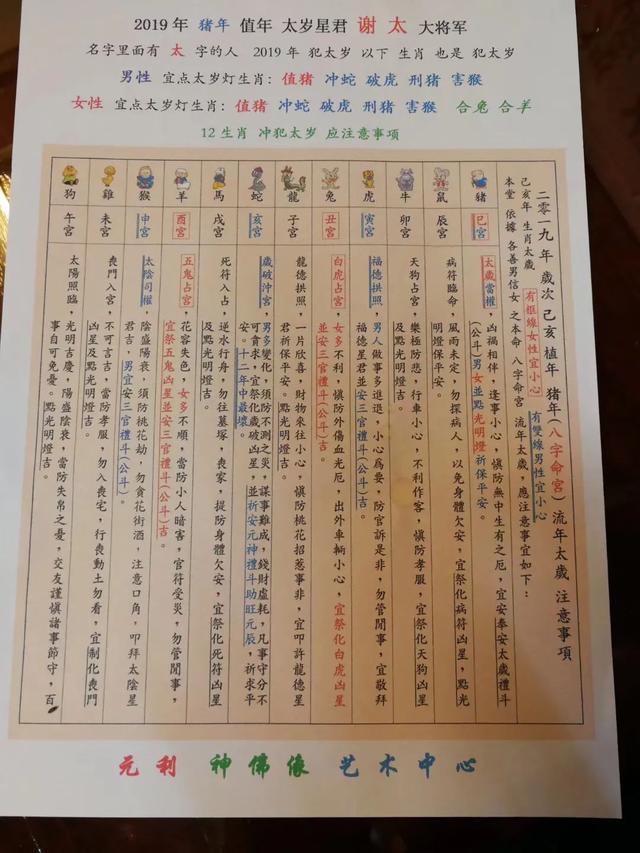 2019年 猪年 值年 太岁星君 谢太 大将军
名字里面有 太 字的人 2019年 犯太岁 以下 生肖 也是 犯太岁
男性 宜点太岁灯生肖: 值猪 冲蛇 破虎 刑猪 害猴
女性 宜点太岁灯生肖: 值猪 冲蛇 破虎 刑猪 害猴 合兔 合羊
12生肖 冲犯太岁 应注意事项
二零一九年歲次 己亥 植年 豬年(八字命宮)流年太歲 注意事項
己亥年 生肖太歲 有框線女性宜小心 有雙線男性宜小心
本堂 依據 各善男信女之本命 八字命宮 流年太歲,應注意事宜如下:
豬 巳宮
太歲當權,凶禍相伴,逢事小心,慎防無中生有之厄,宜安奉安太歲禮斗
(公斗)男女並點光明燈祈保平安。
鼠 辰宮
病符臨命,風雨未定,勿探病人,以免身體欠安,宜祭化病符凶星,點光
明燈保平安。
牛 卯宮
天狗占宮,樂極防悲,行車小心,不利作客,慎防孝服,宜祭化天狗凶星
及點光明燈吉。
虎 寅宮
福德拱照,男人做事多進退,小心為要,防官訴是非,勿管閒事,宜敬拜
福德星君並安三官禮斗(公斗)吉。
兔 丑宮
白虎占宮,女多不利,慎防外傷血光厄,出外車輛小心,宜祭化白虎凶星
並安三官禮斗(公斗)吉。
龍 子宮
龍德拱照,一片欣喜,財物來往小心,慎防桃花招惹事非,宜叩許龍德星
君祈保平安。點光明燈吉。
蛇 亥宮
歲破沖宮,男多變化,須防不測之災,謀事難成,錢財虛耗,凡事守分不
可貪求,宜祭化歲破凶星,並祈安元神禮斗助旺元辰,祈求平
安。十二年中最壞。
馬 戌宮
死符入占,逆水行舟,勿往墓塚,喪家,提防身體欠安,宜祭化死符凶星
及點光明燈吉。
羊 酉宮
五鬼占宮,花容失色,女多不順,當防小人暗害,官符受災,勿管閒事,
宜祭五鬼凶星並安三官禮斗(公斗)吉。
猴 申宮
太陰司權,陰盛陽衰,須防桃花劫,勿貪花街酒,注意口角,叩拜太陰星
君吉,男宜安三官禮斗(公斗)。
雞 未宮
喪門入宮,不可言吉,當防孝服,勿入喪宅,行喪動土勿看,宜制化喪門
凶星及點光明燈吉。
狗 午宮
太陽照臨,光明吉慶,陽盛陰衰,當防失帛之憂,交友謹慎諸事節守,百
事自可免憂。點光明燈吉。
元利 神佛像 艺术中心